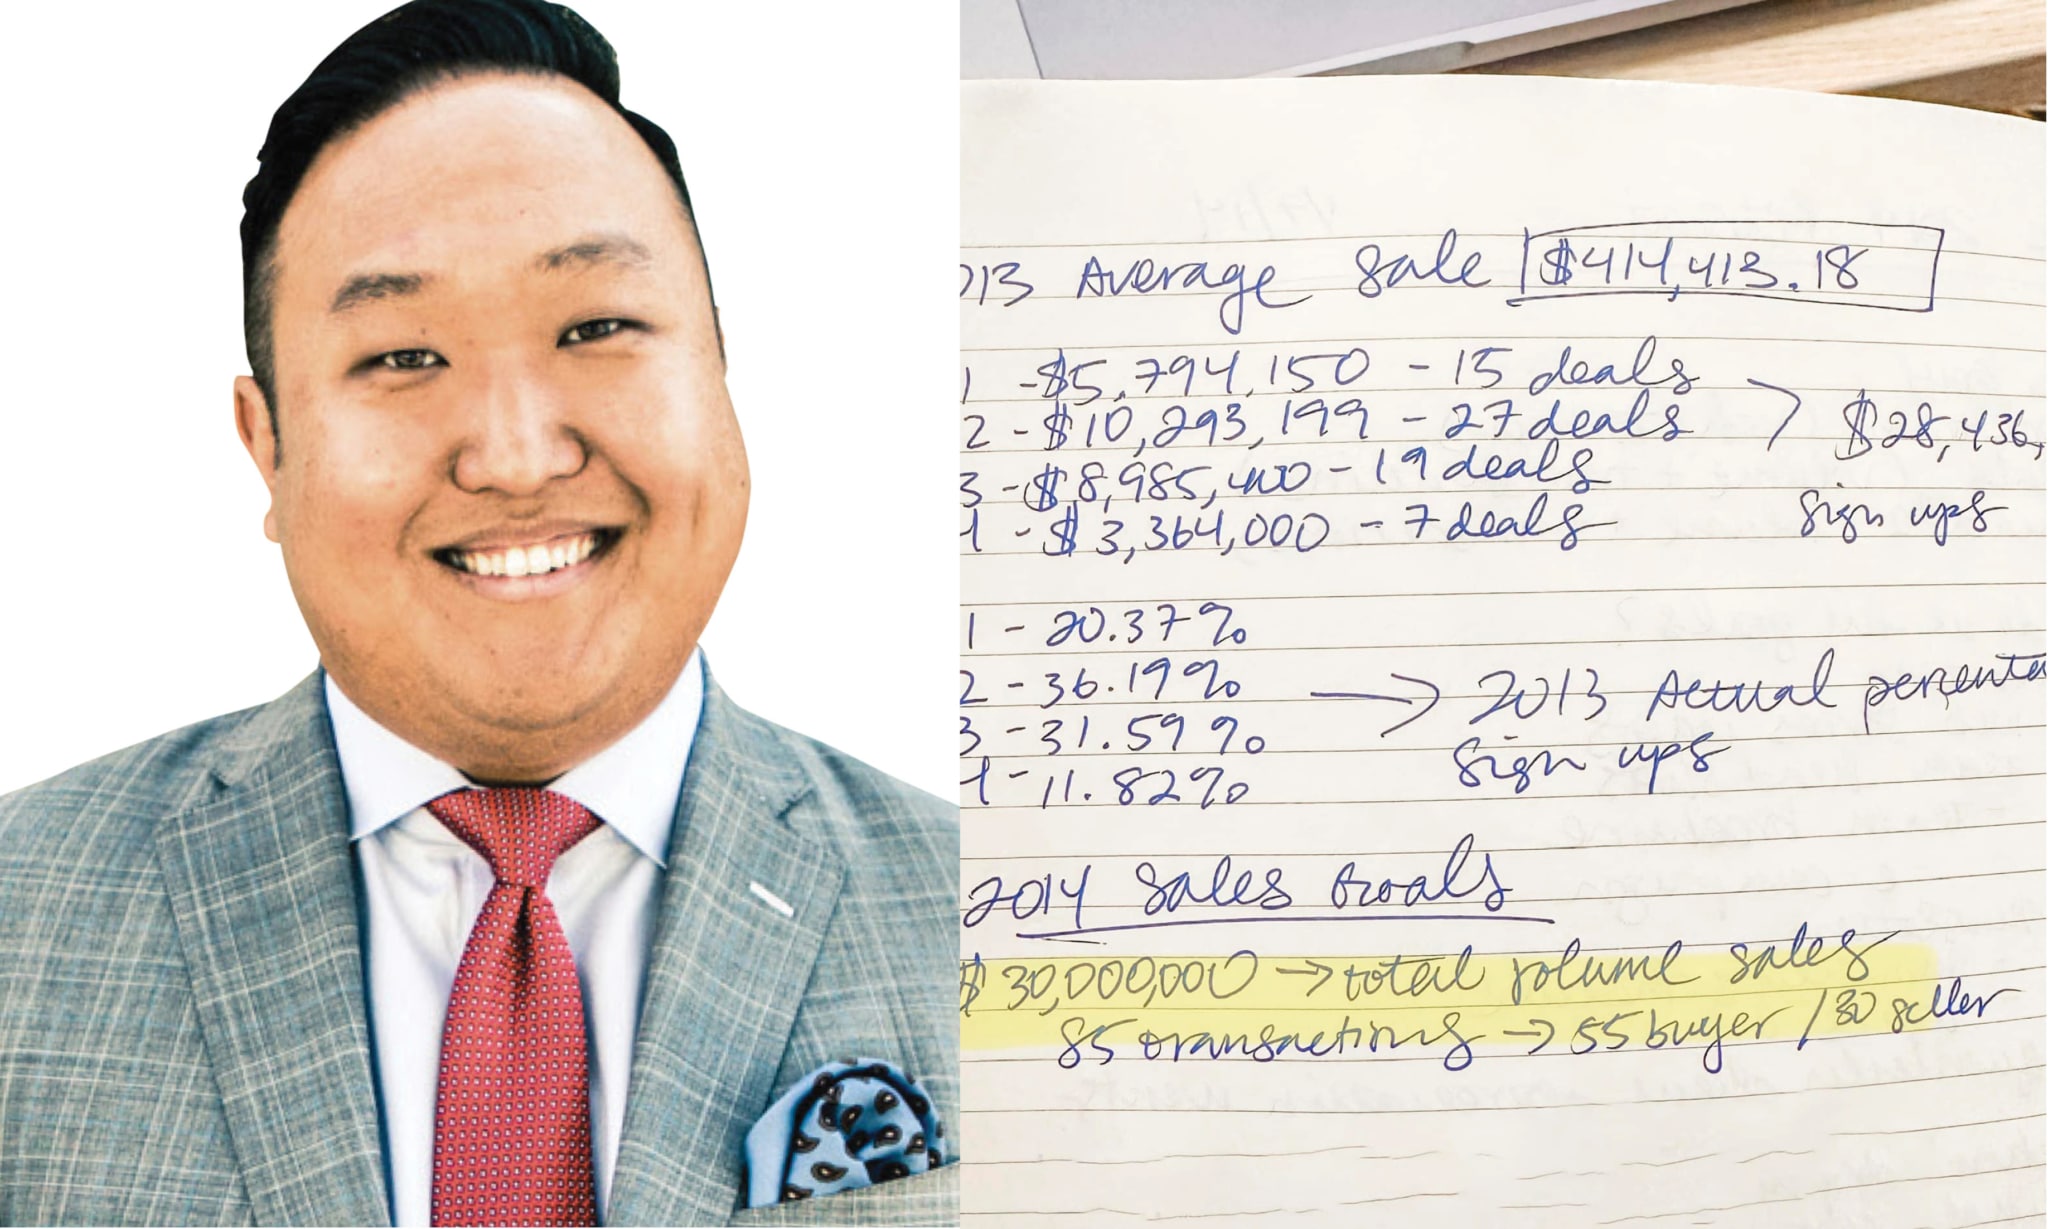 13 Average Sale $414,413.18
1 - $5,794,150 - 15 deals
2 - $10,293,199 - 27 deals
$28,436,
3 - $8,985,400 - 19 deals
sign ups
- $3,364,000 - 7 deals
1 - 20.37%
2 - 36.19%
2013 Actual percenta
3 - 31.59%
sign ups
- 11.82%
2014 Sales Goals
$30,000,000 → total volume sales
85 transactions → 55 buyer / 30 seller